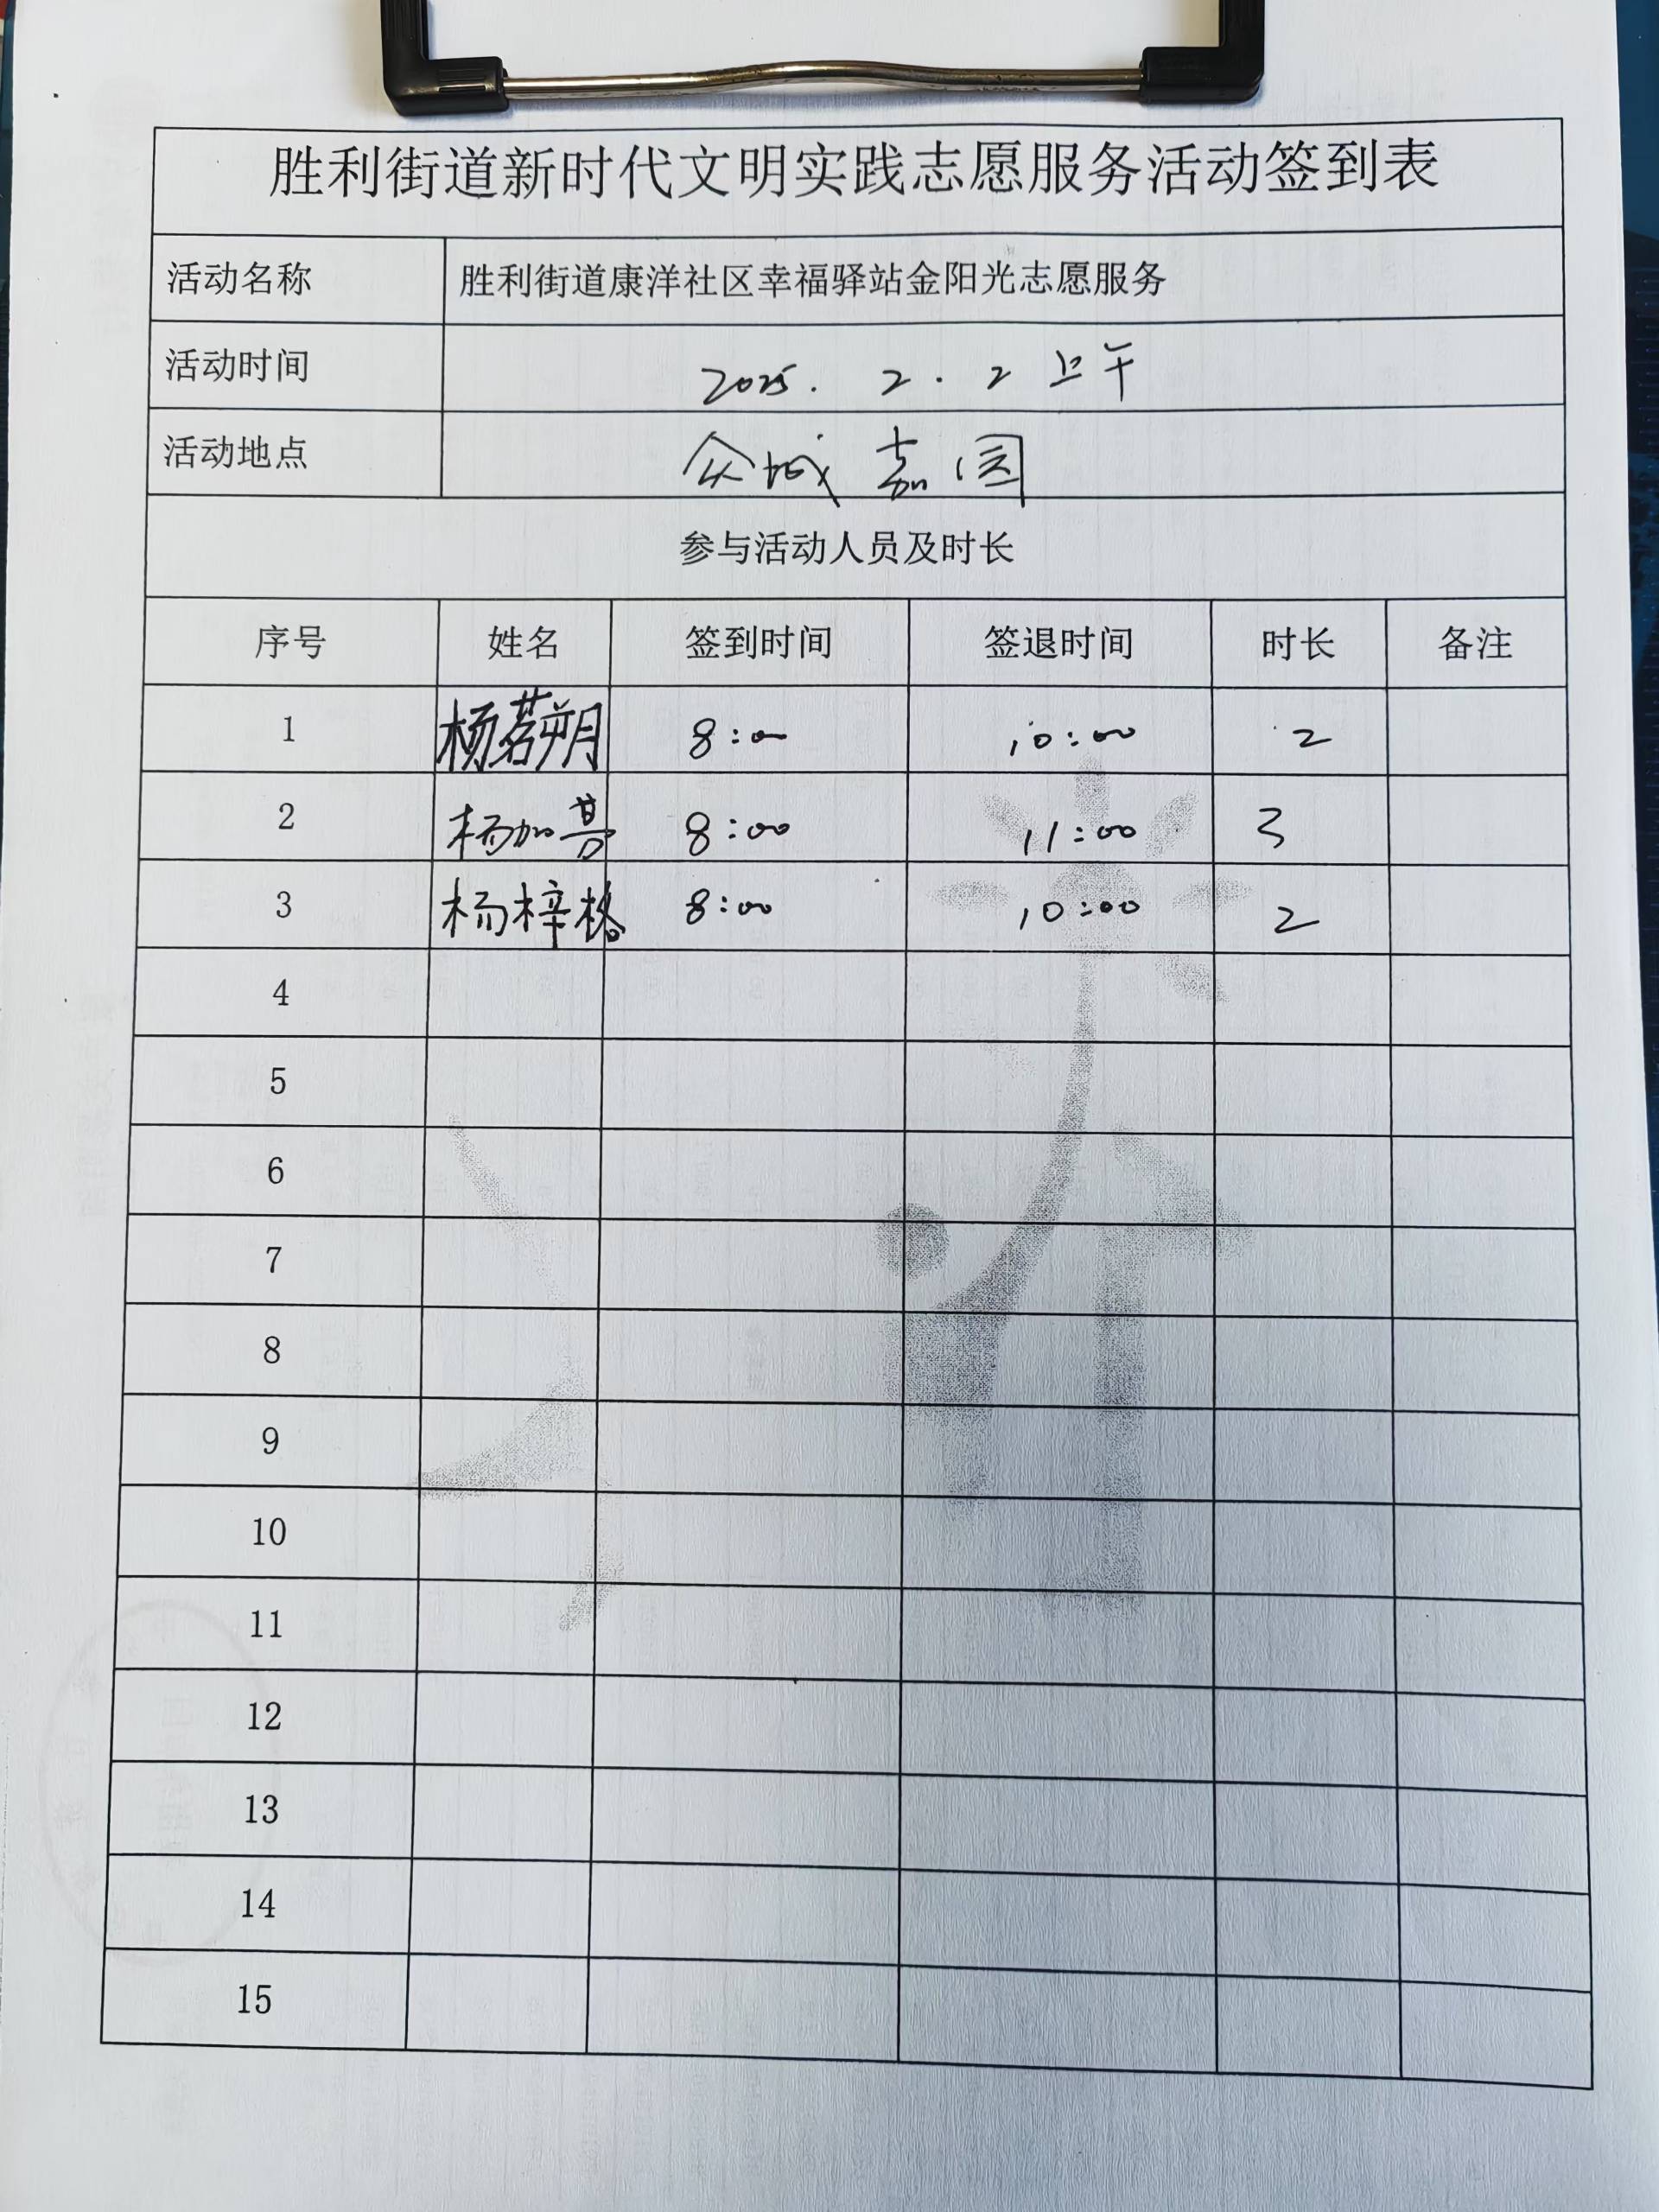 胜利街道新时代文明实践志愿服务活动签到表
活动名称 胜利街道康洋社区幸福驿站金阳光志愿服务
活动时间 2025. 2. 2 上午
活动地点 众城嘉园
参与活动人员及时长
序号 姓名 签到时间 签退时间 时长 备注
1 杨若朔 8:00 10:00 2
2 杨加 8:00 11:00 3
3 杨梓格 8:00 10:00 2
4
5
6
7
8
9
10
11
12
13
14
15